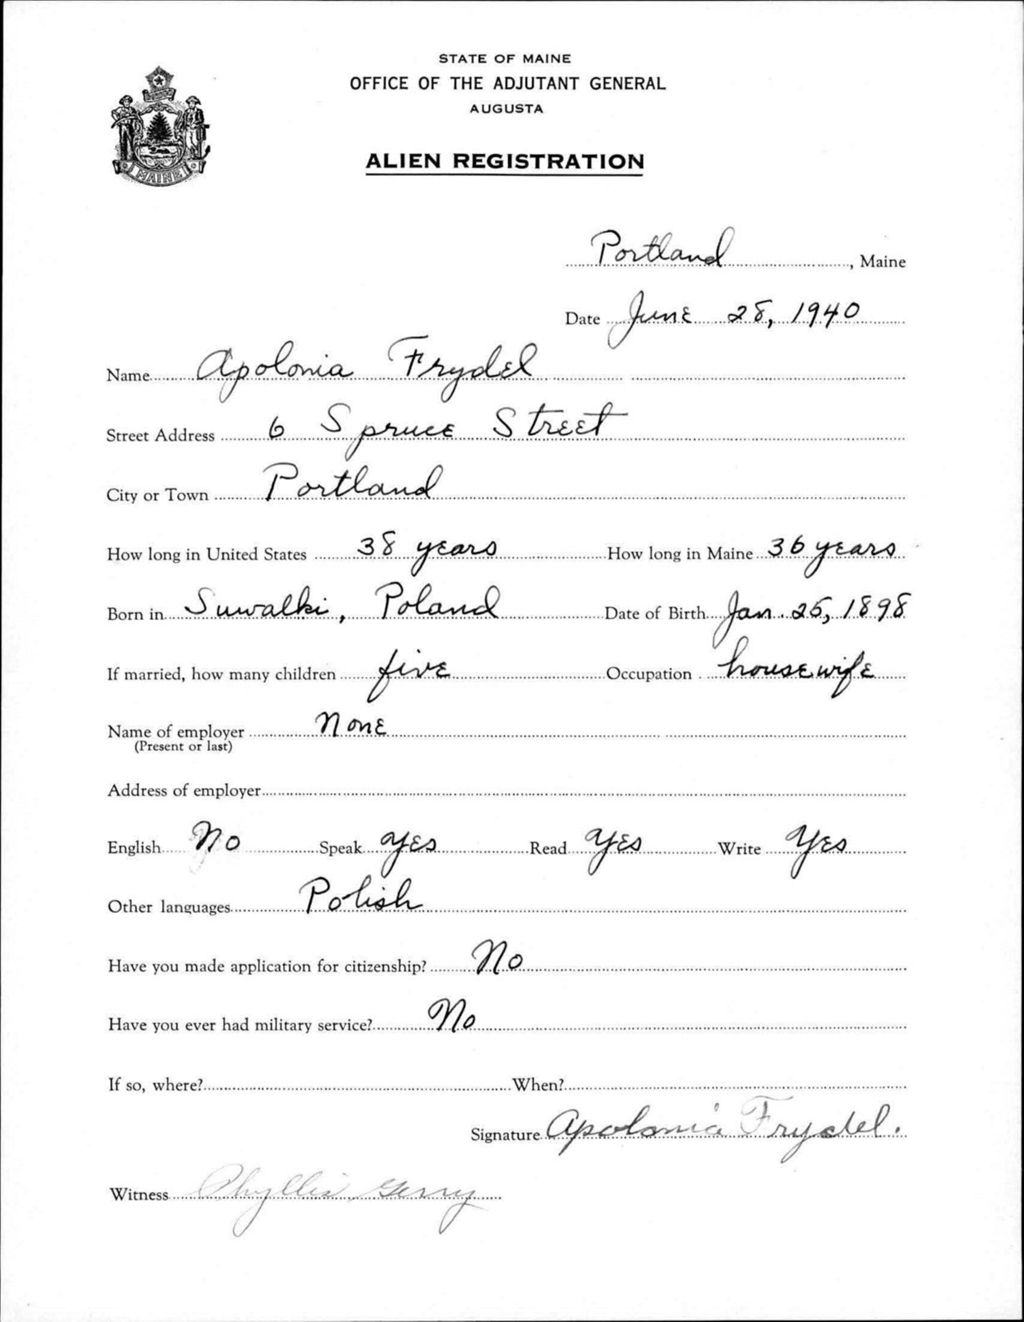 STATE OF MAINE
OFFICE OF THE ADJUTANT GENERAL
AUGUSTA
ALIEN REGISTRATION
MAINE
Portland, Maine
Date June 28, 1940
Name Apolonia Frydel
Street Address 6 Spruce Street
City or Town Portland
How long in United States 38 years How long in Maine 36 years
Born in Suwalki, Poland Date of Birth Jan. 25, 1898
If married, how many children five Occupation housewife
Name of employer None
(Present or last)
Address of employer
English No Speak yes Read yes Write yes
Other languages Polish
Have you made application for citizenship? No
Have you ever had military service? No
If so, where? When?
Signature Apolonia Frydel.
Witness Phyllis Gerry